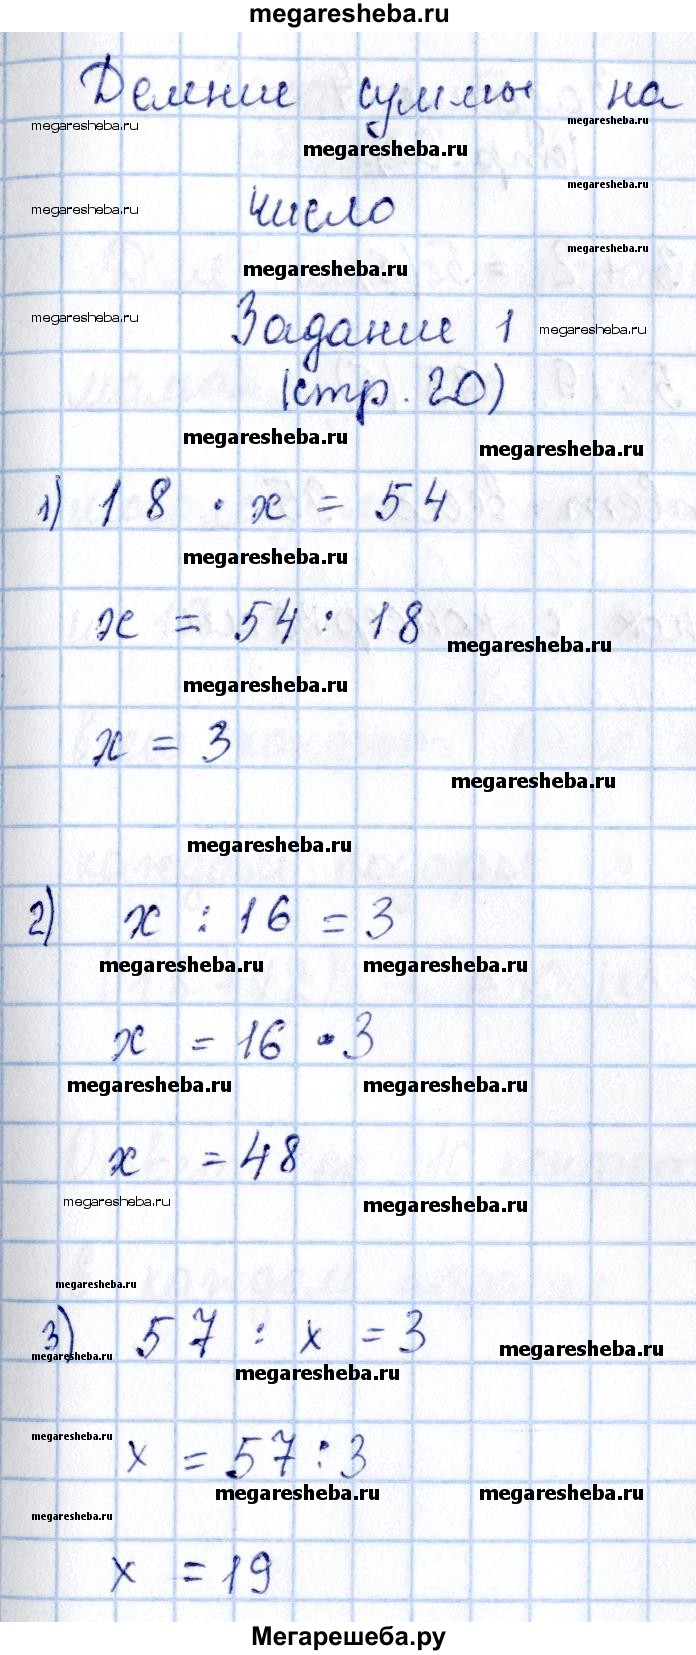 megaresheba.ru
Деление суммы на
megaresheba.ru megaresheba.ru
megaresheba.ru
megaresheba.ru
megaresheba.ru число
megaresheba.ru
megaresheba.ru
megaresheba.ru Задание 1 megaresheba.ru
(стр. 20)
megaresheba.ru megaresheba.ru
1) 18 · x = 54
megaresheba.ru
x = 54 : 18 megaresheba.ru
megaresheba.ru
x = 3
megaresheba.ru
megaresheba.ru
2) x : 16 = 3
megaresheba.ru megaresheba.ru
x = 16 · 3
megaresheba.ru megaresheba.ru
x = 48
megaresheba.ru megaresheba.ru
megaresheba.ru
3) 57 : x = 3
megaresheba.ru megaresheba.ru
megaresheba.ru
megaresheba.ru
x = 57 : 3
megaresheba.ru megaresheba.ru
megaresheba.ru
x = 19
Мегарешеба.ру